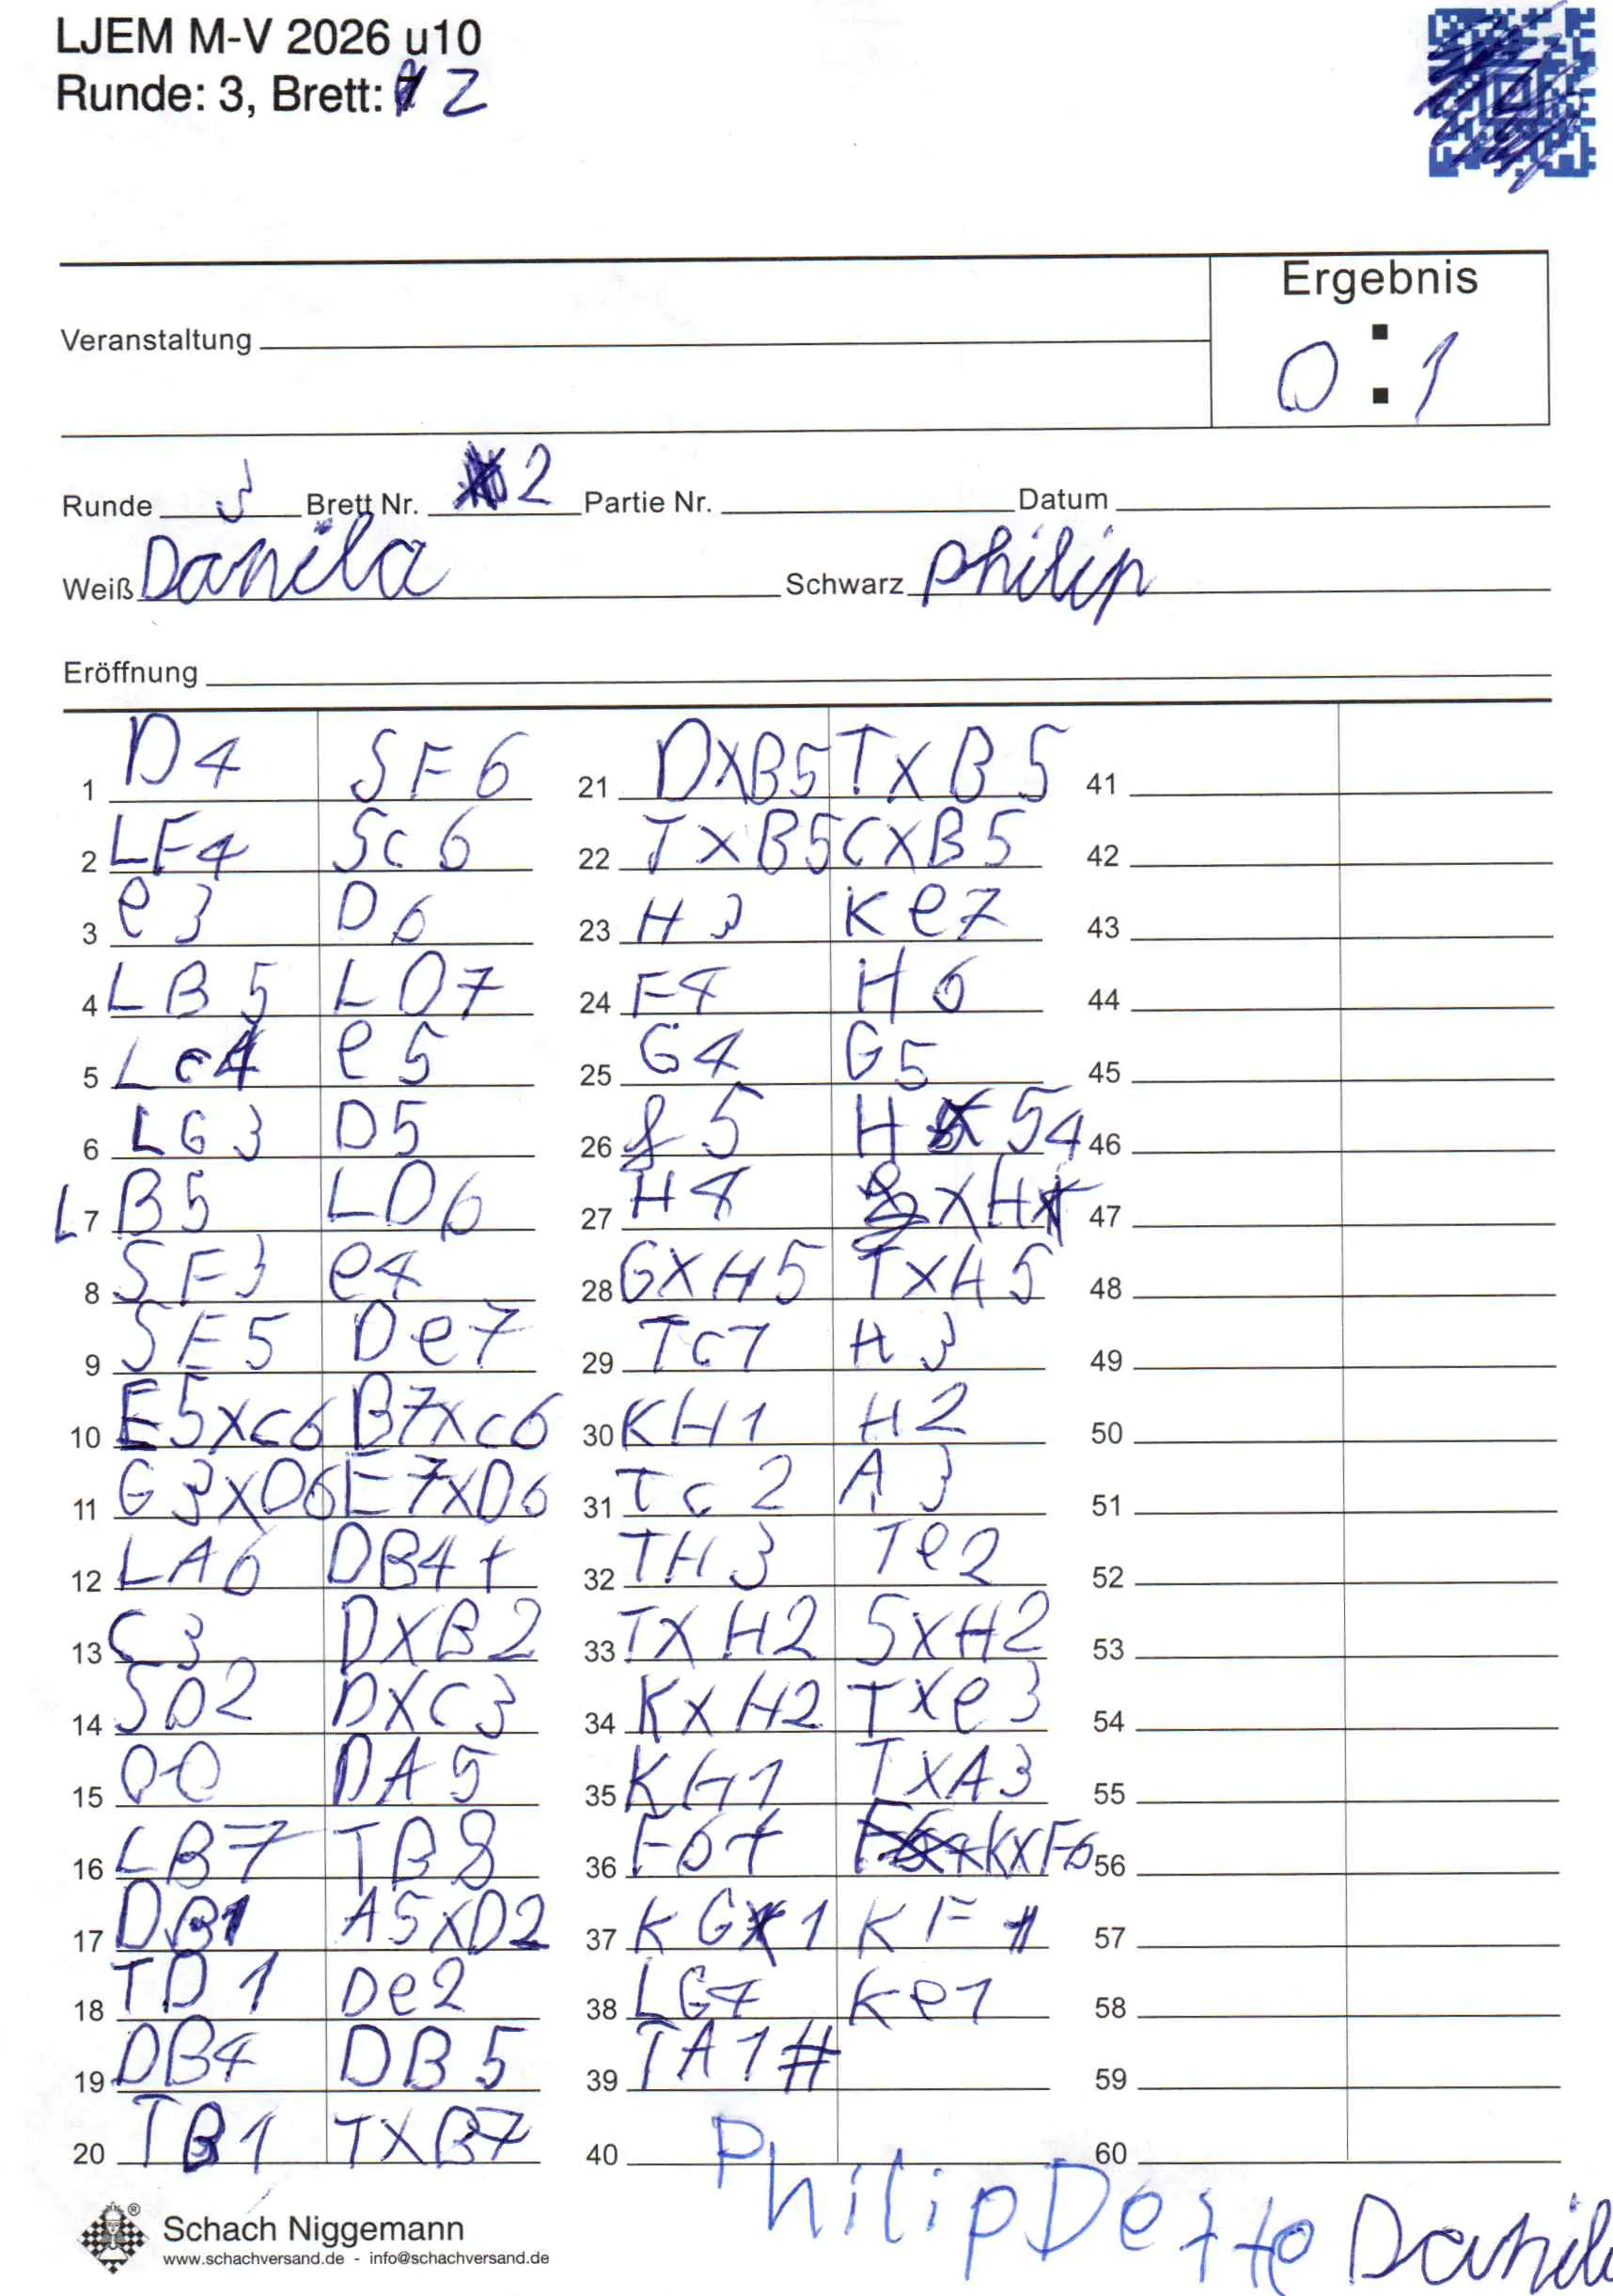 LJEM M-V 2026 u10
Runde: 3, Brett: 2
Ergebnis
Veranstaltung
0 : 1
Runde 3 Brett Nr. 2 Partie Nr. Datum
Weiß Danila Schwarz Philip
Eröffnung
1 D4 SF6 21 DXB5 TXB5 41
2 LF4 Sc6 22 TXB5 CXB5 42
3 e3 D6 23 H3 Ke7 43
4 LB5 LD7 24 F4 H6 44
5 Lc4 e5 25 G4 G5 45
6 LG3 D5 26 f5 H5 46
7 LB5 LD6 27 H4 XH4 47
8 SF3 e4 28 GXH5 TXH5 48
9 SE5 De7 29 Tc7 H3 49
10 E5Xc6 B7Xc6 30 KH1 H2 50
11 G3XD6 E7XD6 31 Tc2 A3 51
12 LA6 DB4+ 32 TH3 Te2 52
13 C3 DXB2 33 TXH2 SXH2 53
14 SD2 DXC3 34 KXH2 TXe3 54
15 0-0 DA5 35 KH1 TXA3 55
16 LB7 TB8 36 F6+ KXF6 56
17 DB1 A5XD2 37 KG1 KF 57
18 TD1 De2 38 LG4 Ke1 58
19 DB4 DB5 39 TA1# 59
20 TB1 TXB7 40 60
Philip Dette Danil
Schach Niggemann
www.schachversand.de - info@schachversand.de